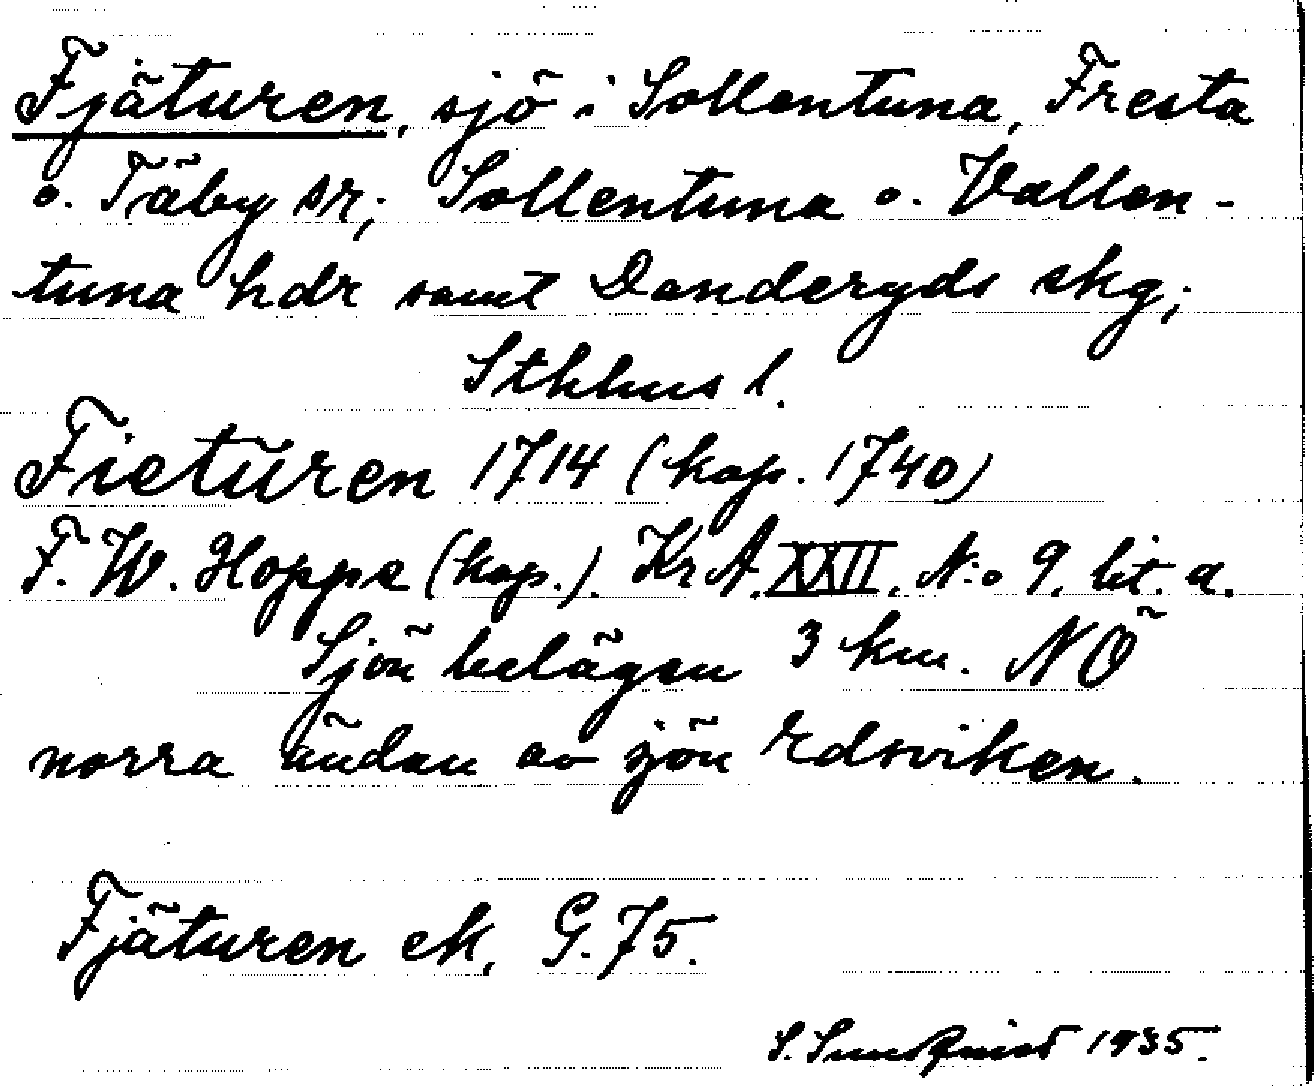 Fjäturen, sjö i Sollentuna, Fresta
o. Täby sr; Sollentuna o. Vallen-
tuna hdr samt Danderyds skg;
Sthlms l.
Fieturen 1714 (kop. 1740)
F. W. Hoppe (kop.). KrA. XXII. N:o 9. lit. a.
Sjön belägen 3 km. NÖ
norra ändan av sjön Edsviken.
Fjäturen ek. G. 75.
S. Sundqvist 1935.